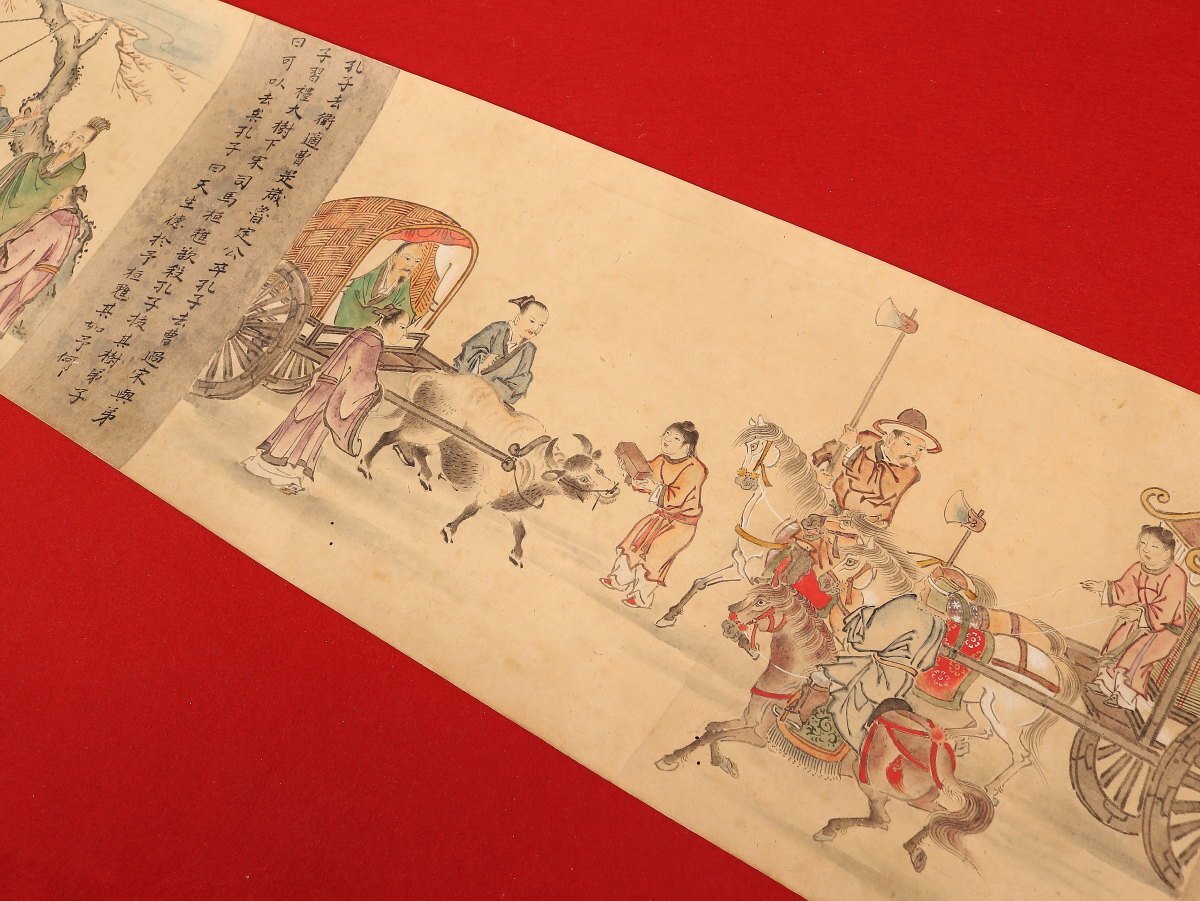 孔子去衛適曹是歲魯定公卒孔子去曹過宋與弟
子習禮大樹下宋司馬桓魋欲殺孔子拔其樹弟子
曰可以去矣孔子曰天生德於予桓魋其如予何